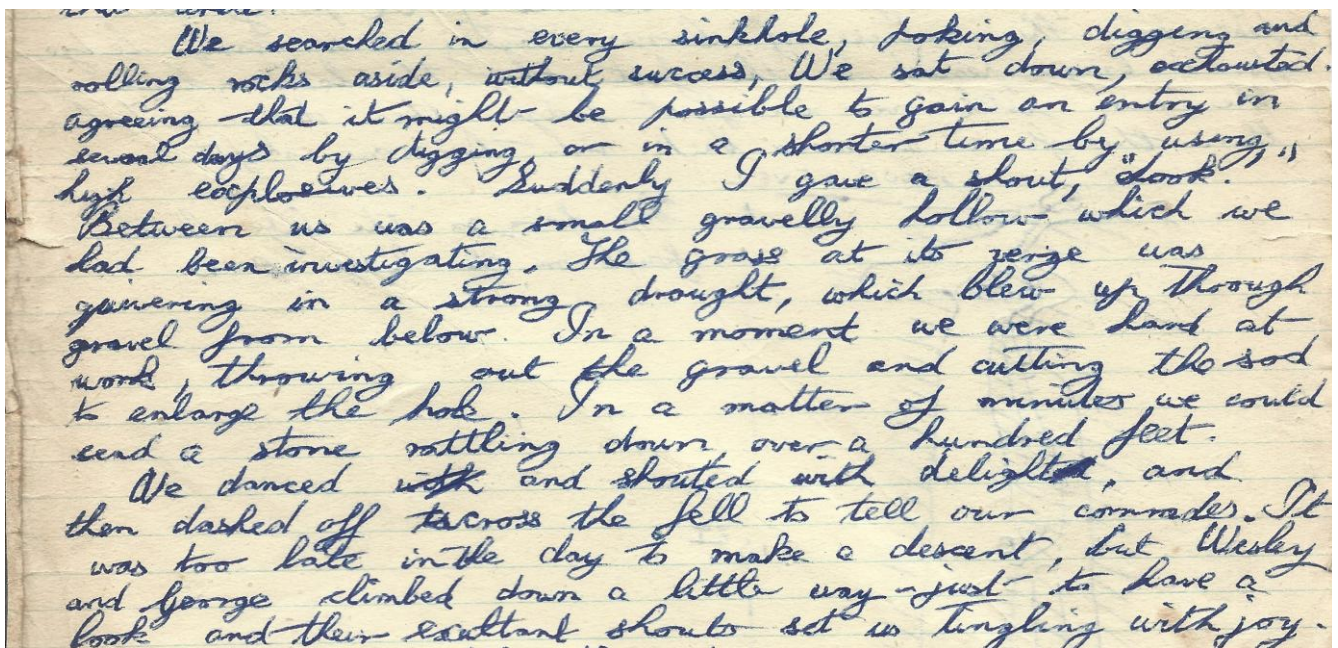 We searched in every sinkhole, poking, digging and
rolling rocks aside, without success, We sat down, exhausted.
agreeing that it might be possible to gain an entry in
several days by digging, or in a shorter time by using
high explosives. Suddenly I gave a shout, "Look."
Between us was a small gravelly hollow which we
had been investigating. The grass at its verge was
quivering in a strong drought, which blew up through
gravel from below. In a moment we were hard at
work, throwing out the gravel and cutting the sod
to enlarge the hole. In a matter of minutes we could
send a stone rattling down over a hundred feet.
We danced with and shouted with delight, and
then dashed off across the fell to tell our comrades. It
was too late in the day to make a descent, but Wesley
and George climbed down a little way - just to have a
look and their exultant shouts set us tingling with joy.